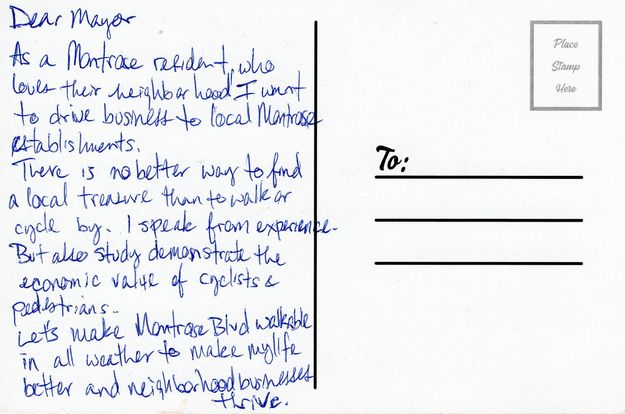 Dear Mayor
As a Montrose resident, who
loves their neighborhood I want
to drive business to local Montrose
establishments.
There is no better way to find
a local treasure than to walk or
cycle by. I speak from experience.
But also study demonstrate the
economic value of cyclists &
pedestrians..
Let's make Montrose Blvd walkable
in all weather to make my life
better and neighborhood businesses
thrive.
Place
Stamp
Here
To: